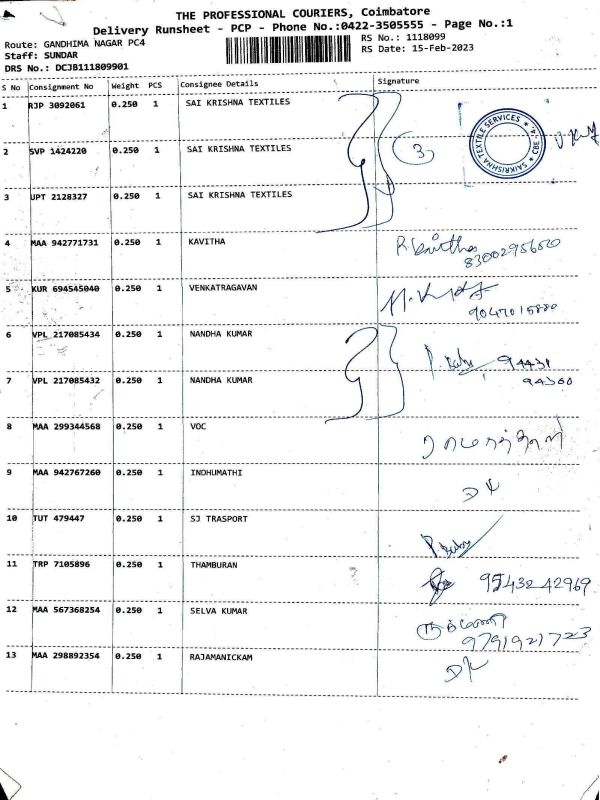 THE PROFESSIONAL COURIERS, Coimbatore
Delivery Runsheet - PCP - Phone No.:0422-3505555 - Page No.:1
Route: GANDHIMA NAGAR PC4
RS No.: 1118099
Staff: SUNDAR
RS Date: 15-Feb-2023
DRS No.: DCJB111809901
S No Consignment No Weight PCS Consignee Details Signature
1 RJP 3092061 0.250 1 SAI KRISHNA TEXTILES
SAIKRISHNA TEXTILE SERVICES * CBE - 4. *
2 SVP 1424220 0.250 1 SAI KRISHNA TEXTILES 3
3 UPT 2128327 0.250 1 SAI KRISHNA TEXTILES
4 MAA 942771731 0.250 1 KAVITHA R. Kavitha
8300295650
5 KUR 694545040 0.250 1 VENKATRAGAVAN
9047015880
6 VPL 217085434 0.250 1 NANDHA KUMAR P. Babu 94431
7 VPL 217085432 0.250 1 NANDHA KUMAR 94300
8 MAA 299344568 0.250 1 VOC
9 MAA 942767260 0.250 1 INDHUMATHI
10 TUT 479447 0.250 1 SJ TRASPORT P. Babu
11 TRP 7105896 0.250 1 THAMBURAN 9543242969
12 MAA 567368254 0.250 1 SELVA KUMAR
9791921723
13 MAA 298892354 0.250 1 RAJAMANICKAM